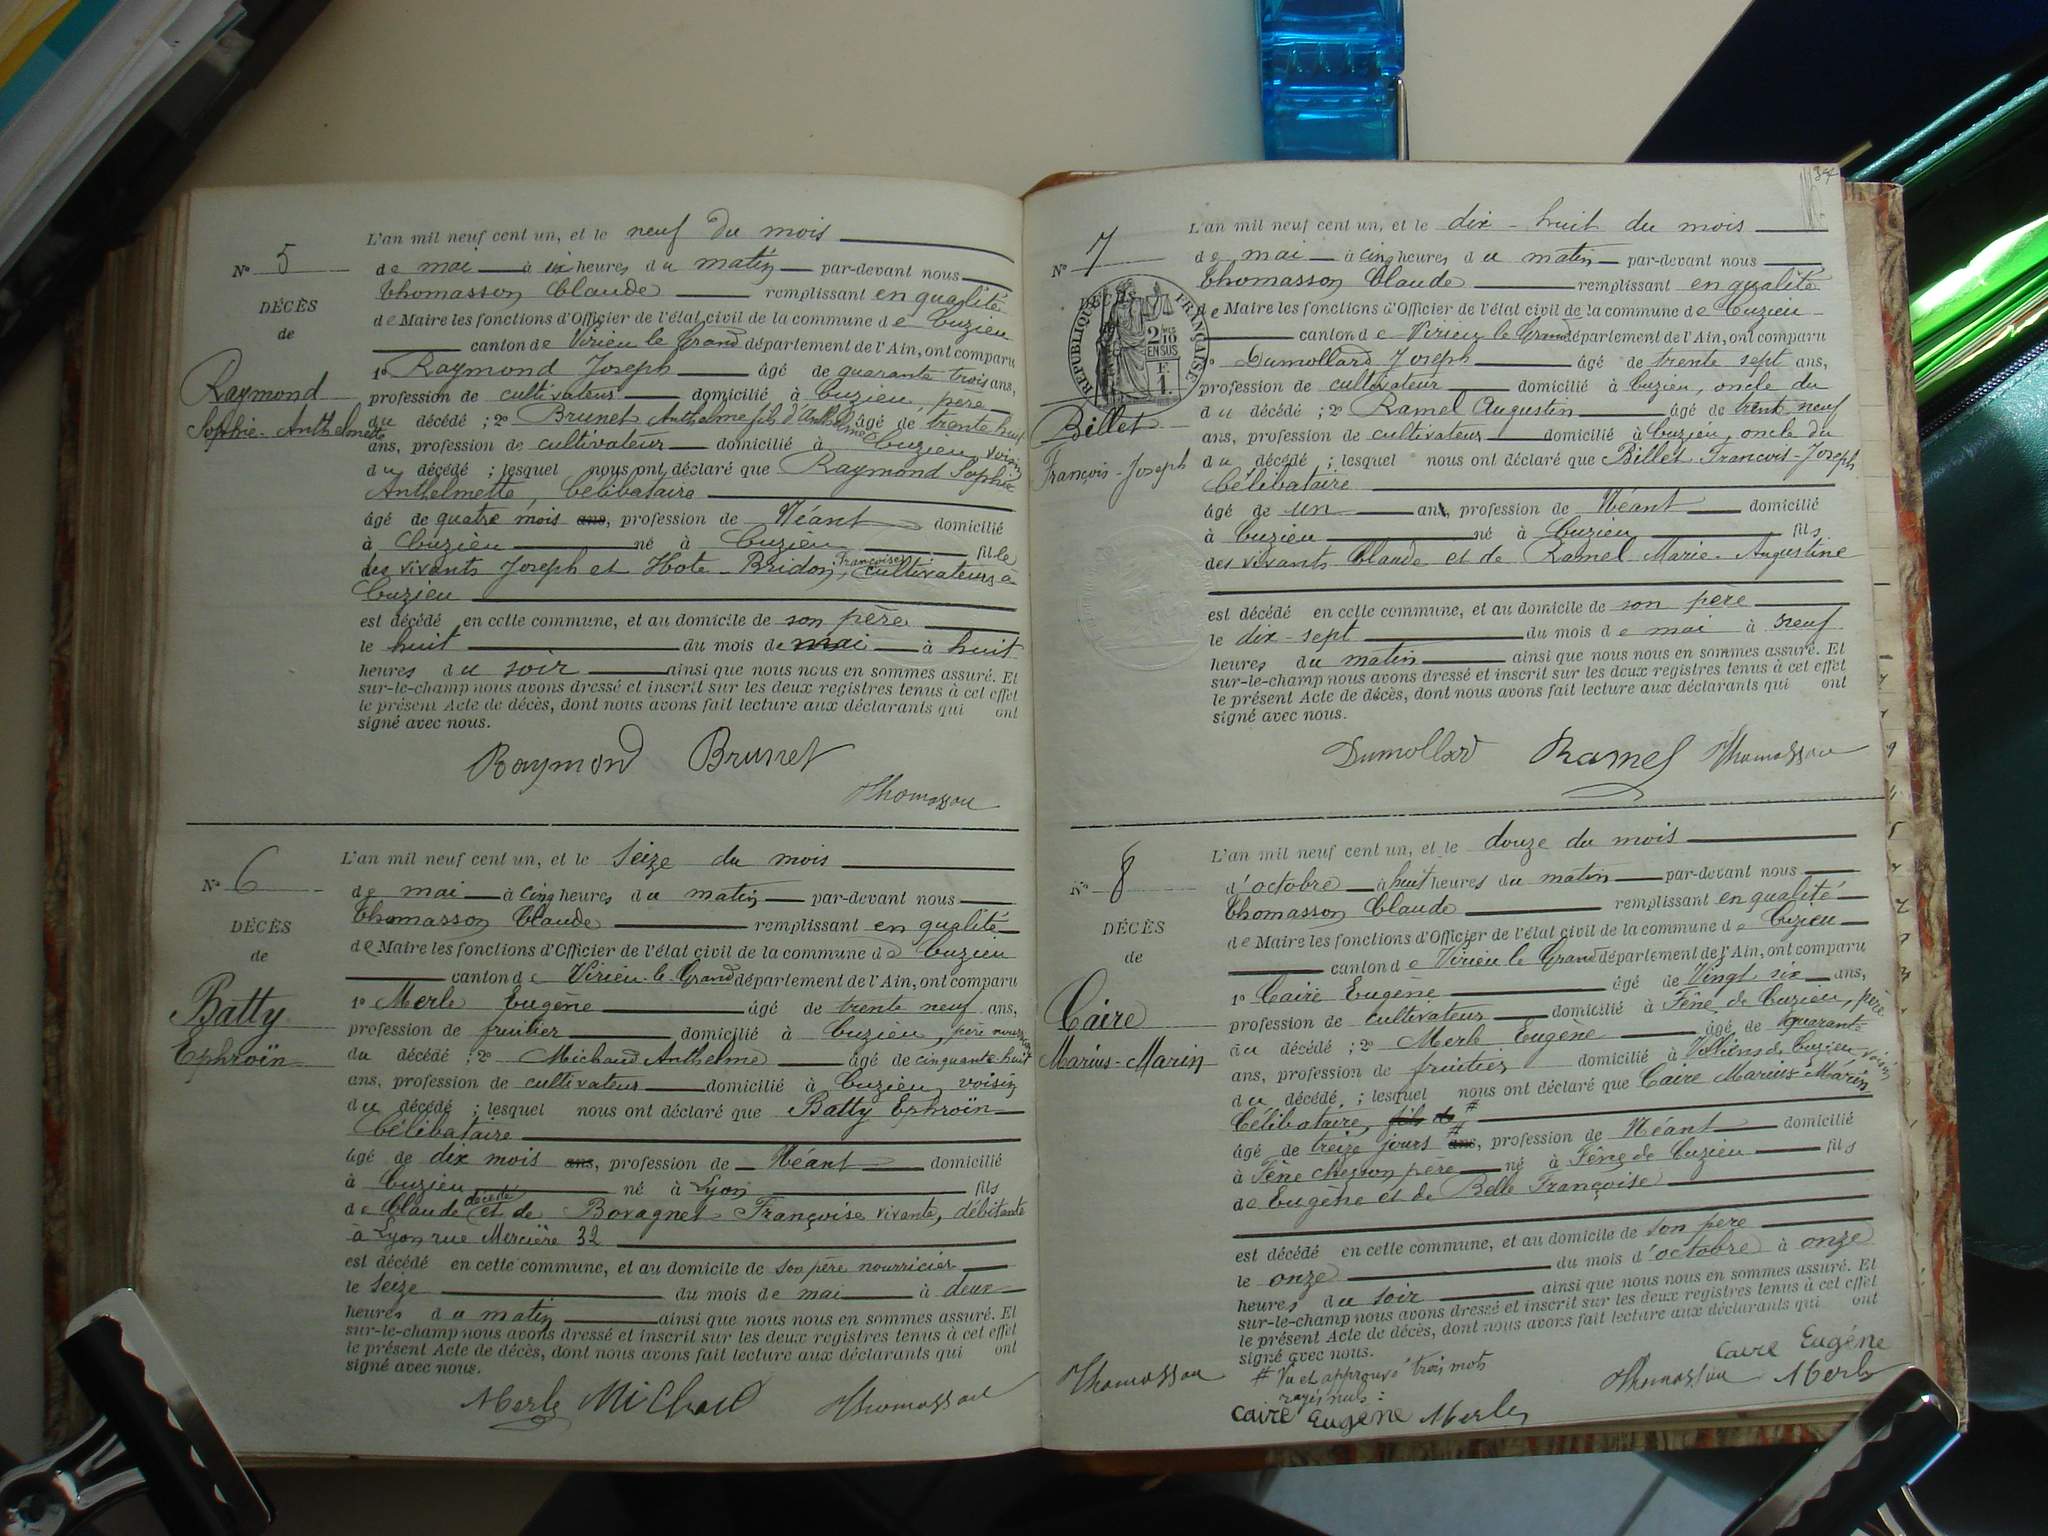 L'an mil neuf cent un, et le neuf du mois
N° 5
de mai à six heures du matin par-devant nous
Thomasson Claude remplissant en qualité
DÉCÈS
de Maire les fonctions d'Officier de l'état civil de la commune de Cuzieu
de
canton de Virieu le Grand département de l'Ain, ont comparu
1° Raymond Joseph âgé de quarante trois ans,
Raymond
profession de cultivateur domicilié à Cuzieu, père
Sophie-Anthelmette
du décédé ; 2° Brunet Anthelme fils d'Anthelme âgé de trente huit
ans, profession de cultivateur domicilié à Cuzieu, voisin
du décédé ; lesquel nous ont déclaré que Raymond Sophie
Anthelmette, Célibataire
âgé de quatre mois ans, profession de Néant domicilié
à Cuzieu né à Cuzieu fille
des vivants Joseph et Hote-Bridon, Françoise, cultivateurs à
Cuzieu
est décédé en cette commune, et au domicile de son père
le huit du mois de mai à huit
heures du soir ainsi que nous nous en sommes assuré. Et
sur-le-champ nous avons dressé et inscrit sur les deux registres tenus à cet effet
le présent Acte de décès, dont nous avons fait lecture aux déclarants qui ont
signé avec nous.
Raymond Brunet
Thomasson
L'an mil neuf cent un, et le seize du mois
N° 6
de mai à cinq heures du matin par-devant nous
Thomasson Claude remplissant en qualité
DÉCÈS
de Maire les fonctions d'Officier de l'état civil de la commune de Cuzieu
de
canton de Virieu-le-Grand département de l'Ain, ont comparu
1° Merle Eugène âgé de trente neuf ans,
Batty
profession de fruitier domicilié à Cuzieu, père nourricier
Ephroïn
du décédé ; 2° Michaud Anthelme âgé de cinquante-huit
ans, profession de cultivateur domicilié à Cuzieu, voisin
du décédé ; lesquel nous ont déclaré que Batty Ephroïn
Célibataire
âgé de dix mois ans, profession de Néant domicilié
à Cuzieu né à Lyon fils
de Claude décédé et de Bovagnet Françoise vivante, débitante
à Lyon rue Mercière 32
est décédé en cette commune, et au domicile de son père nourricier
le seize du mois de mai à deux
heures du matin ainsi que nous nous en sommes assuré. Et
sur-le-champ nous avons dressé et inscrit sur les deux registres tenus à cet effet
le présent Acte de décès, dont nous avons fait lecture aux déclarants qui ont
signé avec nous.
Merle Michaud Thomasson
37
L'an mil neuf cent un, et le dix-huit du mois
N° 7
de mai à cinq heures du matin par-devant nous
Thomasson Claude remplissant en qualité
DÉCÈS
RÉPUBLIQUE FRANÇAISE
2/10 EN SUS
1 F.
de Maire les fonctions d'Officier de l'état civil de la commune de Cuzieu
canton de Virieu le Grand département de l'Ain, ont comparu
1° Dumollard Joseph âgé de trente sept ans,
profession de cultivateur domicilié à Cuzieu, oncle du
Billet
du décédé ; 2° Ramel Augustin âgé de trente neuf
François-Joseph
ans, profession de cultivateur domicilié à Cuzieu, oncle du
du décédé ; lesquel nous ont déclaré que Billet François-Joseph
Célibataire
âgé de un an, profession de Néant domicilié
à Cuzieu né à Cuzieu fils
des vivants Claude et de Ramel Marie-Augustine
est décédé en cette commune, et au domicile de son père
le dix-sept du mois de mai à neuf
heures du matin ainsi que nous nous en sommes assuré. Et
sur-le-champ nous avons dressé et inscrit sur les deux registres tenus à cet effet
le présent Acte de décès, dont nous avons fait lecture aux déclarants qui ont
signé avec nous.
Dumollard Ramel Thomasson
L'an mil neuf cent un, et le douze du mois
N° 8
d'octobre à huit heures du matin par-devant nous
Thomasson Claude remplissant en qualité
DÉCÈS
de Maire les fonctions d'Officier de l'état civil de la commune de Cuzieu
de
canton de Virieu le Grand département de l'Ain, ont comparu
1° Caire Eugène âgé de Vingt six ans,
Caire
profession de cultivateur domicilié à Fêne de Cuzieu, père
Marius-Marin
du décédé ; 2° Merle Eugène âgé de quarante
ans, profession de fruitier domicilié à Volliens de Cuzieu, voisin
du décédé ; lesquel nous ont déclaré que Caire Marius-Marin
Célibataire, fils de #
âgé de treize jours # ans, profession de Néant domicilié
à Fêne chez son père né à Fêne de Cuzieu fils
de Eugène et de Belle Françoise
est décédé en cette commune, et au domicile de son père
le onze du mois d'octobre à onze
heures du soir ainsi que nous nous en sommes assuré. Et
sur-le-champ nous avons dressé et inscrit sur les deux registres tenus à cet effet
le présent Acte de décès, dont nous avons fait lecture aux déclarants qui ont
signé avec nous.
Caire Eugène
# Vu et approuvé trois mots
Thomasson Thomasson Merle
rayés nuls :
Caire Eugène Merle